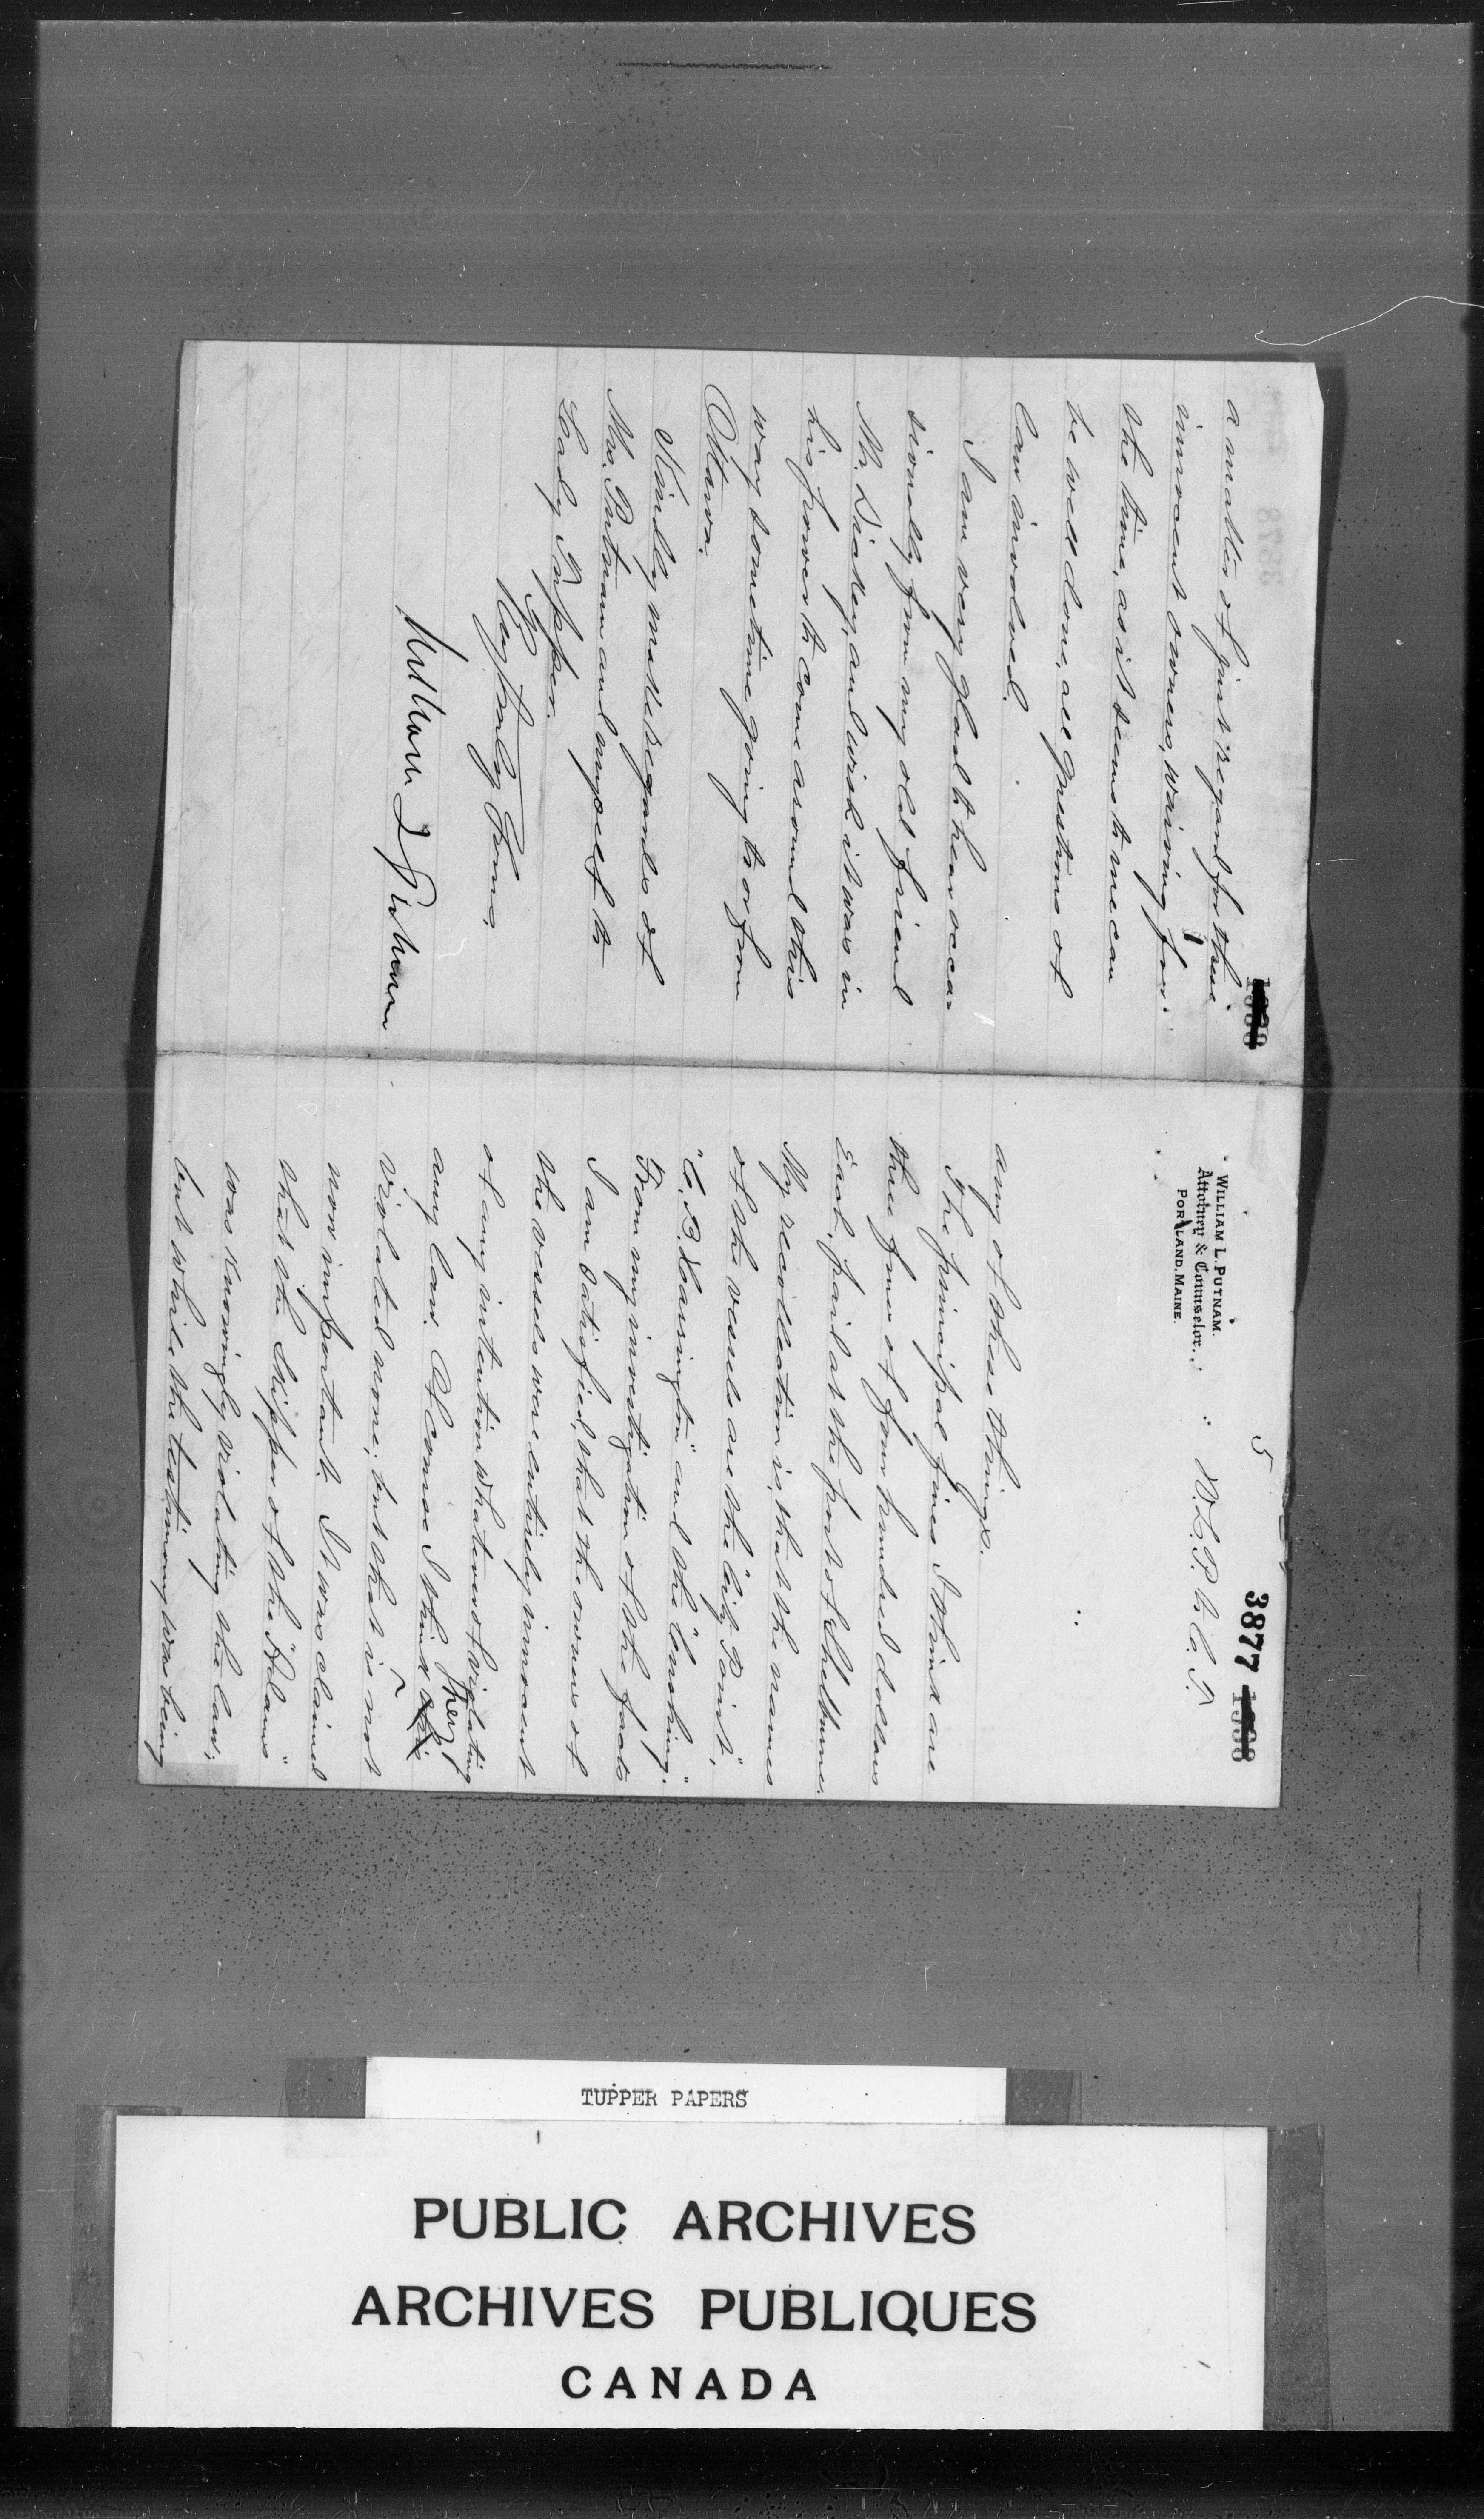 a matter of just regard for these
innocent owners, waiving for
the time, as it seems to me can
be well done, all questions of
law involved.
I am very glad to hear occa-
sionally from my old friend
Mr. Dickey, and wish it was in
his power to come around this
way sometime going to or from
Ottawa.
Kindly make regards of
Mrs. Putnam and myself to
Lady Tupper.
Faythfully Yours,
William L Putnam
5
3877
WILLIAM L. PUTNAM.
Attorney & Counselor.
PORTLAND. MAINE.
W.L.P. to C.T.
any of these things.
The principal fines I think are
three fines of four hundred dollars
Each, paid at the port of Shelburne.
My recollection is, that the names
of the vessels are the "City Point",
"C. B. Harrington" and the "Cushing".
From my investigation of the facts
I am satisfied, that the owners of
the vessels were entirely innocent
of any intention whatever of violating
any law. Of course I think they
violated none; but that is not
now important. It was claimed
that the Skipper of the
was knowingly violating the law;
but while the testimony was being
TUPPER PAPERS
PUBLIC ARCHIVES
ARCHIVES PUBLIQUES
CANADA